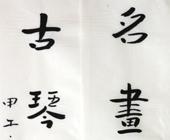 名畫
古琴
甲工